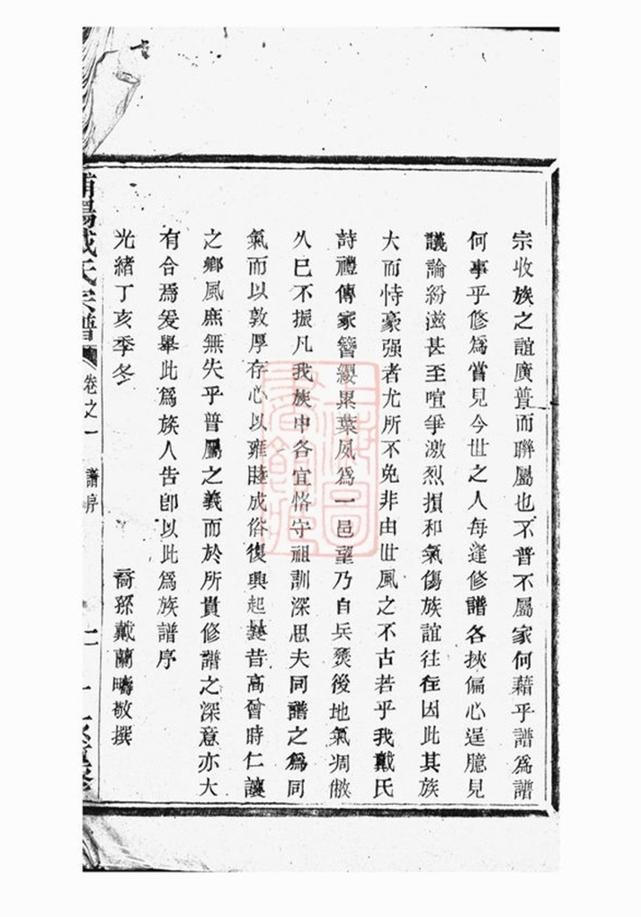 宗收族之誼廣普而聯屬也不普不屬家何藉乎譜爲譜
何事乎修爲嘗見今世之人每逢修譜各挾偏心逞臆見
議論紛滋甚至喧爭激烈損和氣傷族誼往往因此其族
大而恃豪强者尤所不免非由世風之不古若乎我戴氏
詩禮傳家簪纓累葉夙爲一邑望乃自兵燹後地氣凋敝
久已不振凡我族中各宜恪守祖訓深思夫同譜之爲同
氣而以敦厚存心以雍睦成俗復興起曩昔高曾時仁讓
之鄉風庶無失乎普屬之義而於所貴修譜之深意亦大
有合焉爰舉此爲族人告卽以此爲族譜序
光緒丁亥季冬 裔孫戴蘭疇敬撰
陽戴氏宗譜 卷之一 譜序